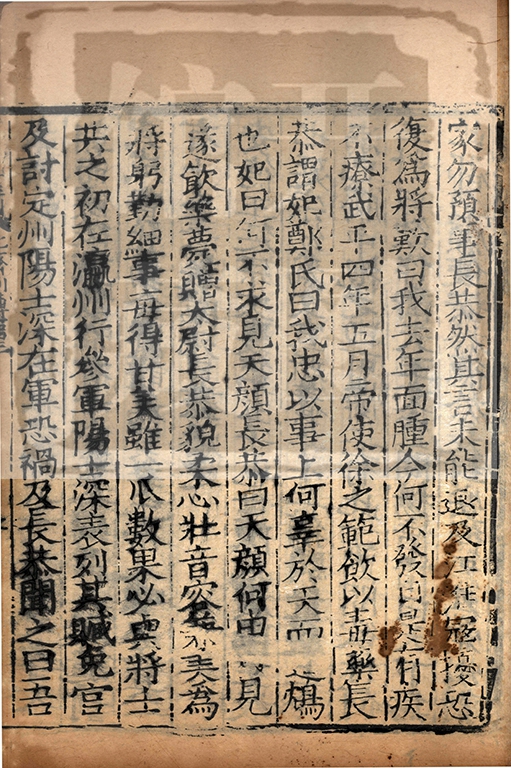 家勿預事長恭然其言未能退及江淮寇擾恐
復爲將歎曰我去年面腫今何不發自是有疾
不療武平四年五月帝使徐之範飲以毒藥長
恭謂妃鄭氏曰我忠以事上何辜於天而鴆
也妃曰何不求見天顔長恭曰天顔何由見
遂飲藥薨贈太尉長恭貌柔心壯音容美爲
將躬勤細事每得甘美雖一瓜數果必與將士
共之初在瀛州行參軍陽士深表列其贓免官
及討定州陽士深在軍恐禍及長恭聞之曰吾